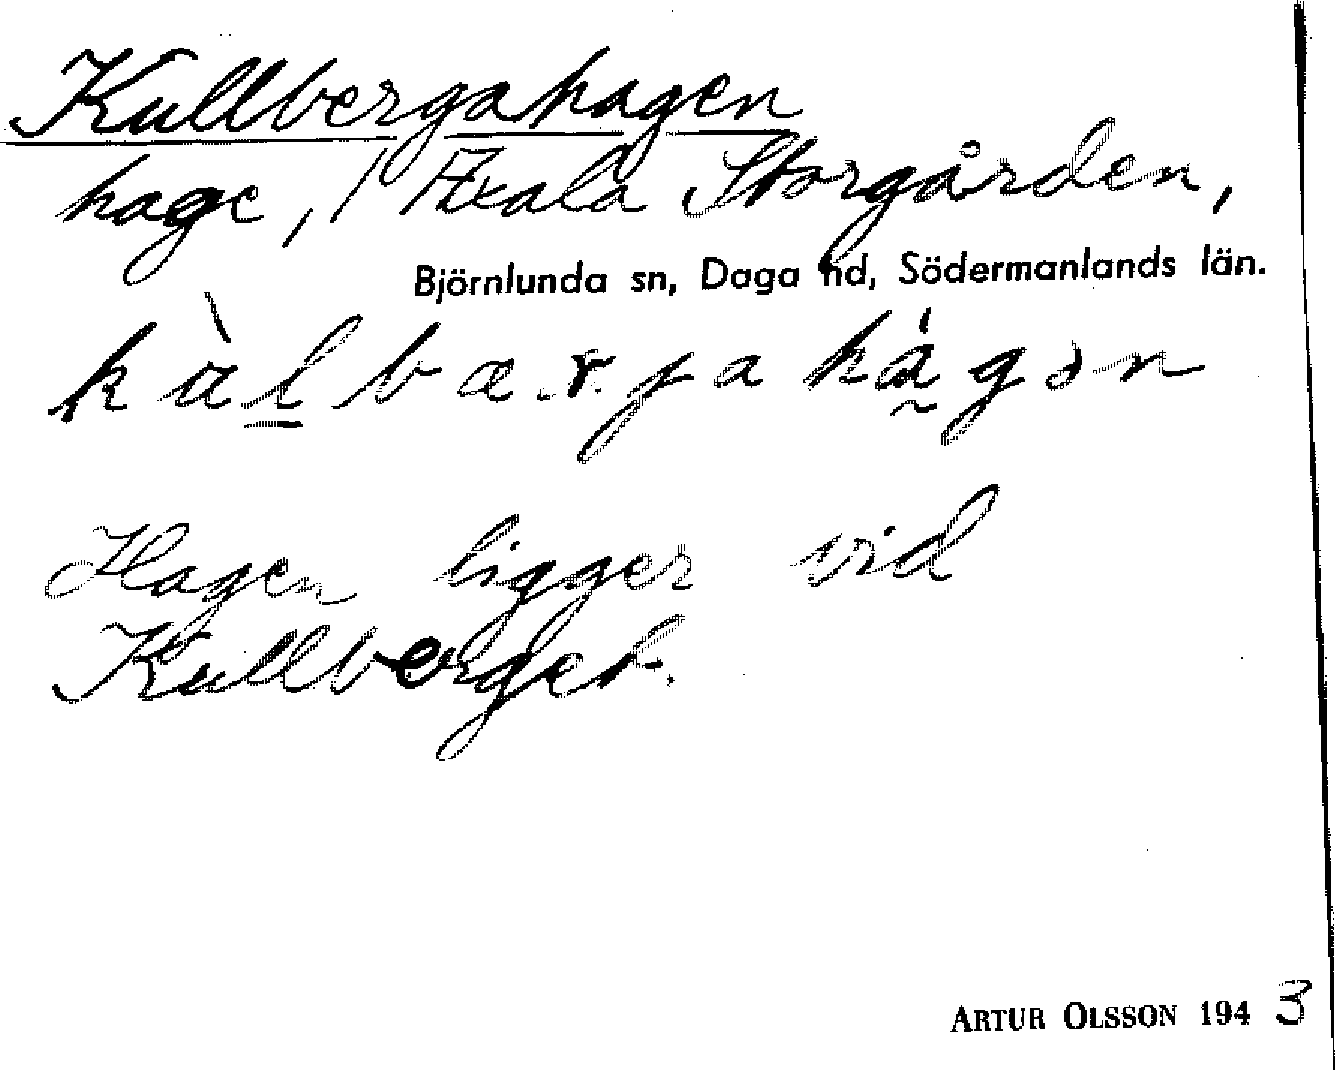 Kullbergahagen
hage, / Axala Storgården,
Björnlunda sn, Daga hd, Södermanlands län.
Hagen ligger vid
Kullberget.
ARTUR OLSSON 1943